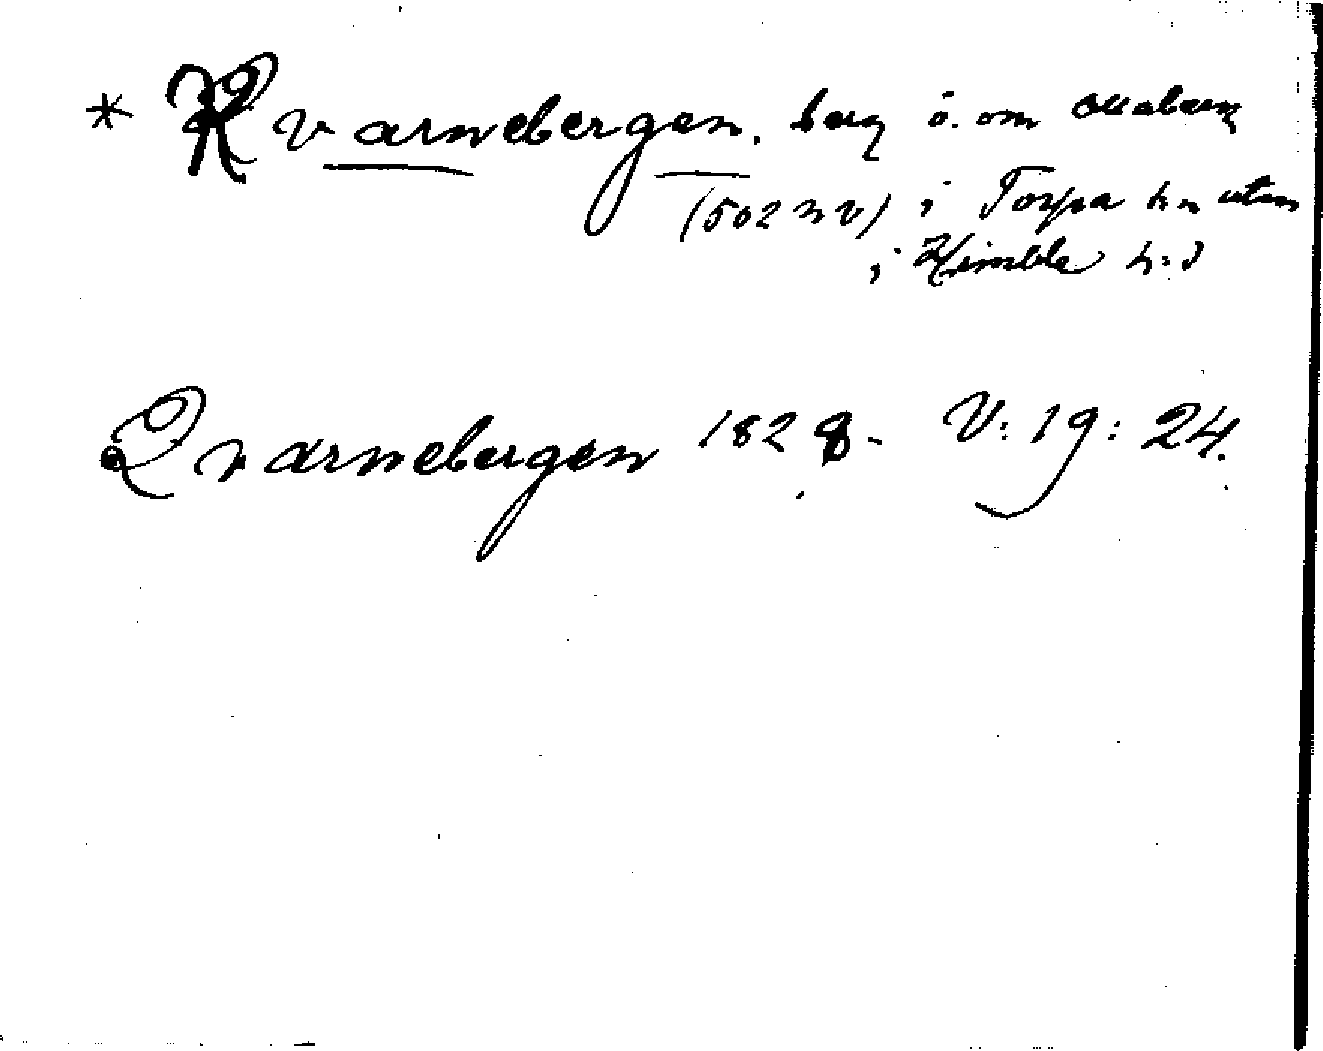 * Kvarnebergen. berg ö. om
(502 NV) i Torpa sn utan
i Himble h:d
Qvarnebergen 1828. V: 19: 24.